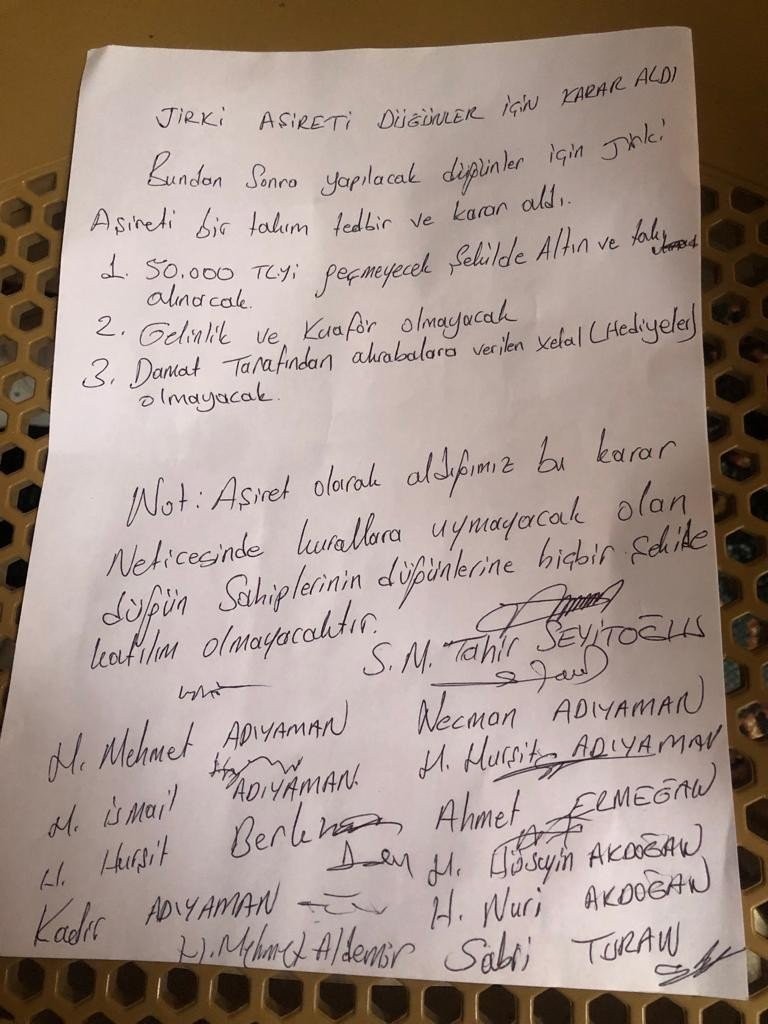 JİRKİ AŞİRETİ DÜĞÜNLER İÇİN KARAR ALDI
Bundan Sonra yapılacak düğünler için Jirki
Aşireti bir takım tedbir ve karar aldı.
1. 50.000 TLyi geçmeyecek Şekilde Altın ve takı
alınacak.
2. Gelinlik ve Kuaför olmayacak
3. Damat Tarafından akrabalara verilen Xelat (Hediyeler)
olmayacak.
Not: Aşiret olarak aldığımız bu karar
Neticesinde kurallara uymayacak olan
düğün Sahiplerinin düğünlerine hiçbir Şekilde
katılım olmayacaktır.
S.M. Tahir SEYİTOĞLU
H. Mehmet ADIYAMAN Necman ADIYAMAN
H. İsmail ADIYAMAN. H. Hurşit ADIYAMAN
H. Hurşit Ahmet ERMEĞAN
H. Hüseyin AKDOĞAN
Kadir ADIYAMAN H. Nuri AKDOĞAN
H. Mehmet Aldemir Sabri TURAN